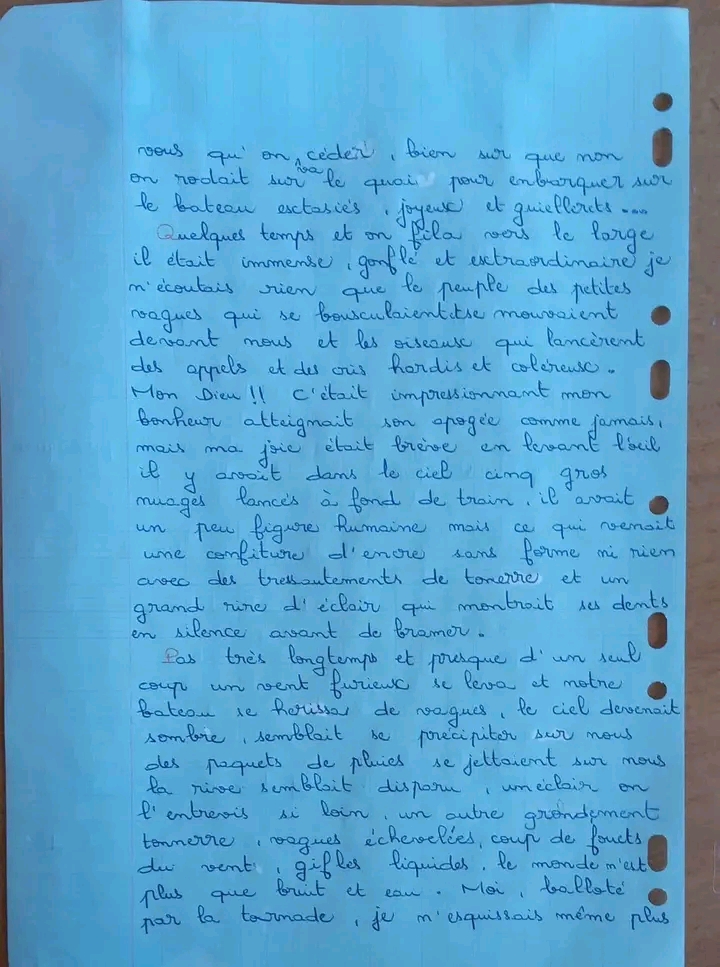 vous qu'on va céder, bien sur que non
on rodait sur le quai pour embarquer sur
le bateau esctasiés, joyeux et guiellerets....
Quelques temps et on fila vers le large
il était immense, gonflé et extraordinaire je
n'écoutais rien que le peuple des petites
vagues qui se bousculaient et se mouvaient
devant nous et les oiseaux qui lancèrent
des appels et des cris hardis et coléreux.
Mon Dieu !! C'était impressionnant mon
bonheur atteignait son apogée comme jamais,
mais ma joie était brève en levant l'œil
il y avait dans le ciel cinq gros
nuages lancés à fond de train, il avait
un peu figure humaine mais ce qui venait
une confiture d'encre sans forme ni rien
avec des tressautements de tonerre et un
grand rire d'éclair qui montrait ses dents
en silence avant de bramer.
Pas très longtemps et presque d'un seul
coup un vent furieux se leva et notre
bateau se herissa de vagues, le ciel devenait
sombre, semblait se précipiter sur nous
des paquets de pluies se jettaient sur nous
la rive semblait disparu, un éclair on
l'entrevis si loin, un autre grondement
tonnerre, vagues échevelées, coup de fouets
du vent, gifles liquides, le monde n'est
plus que bruit et eau. Moi, balloté
par la tournade, je n'esquissais même plus